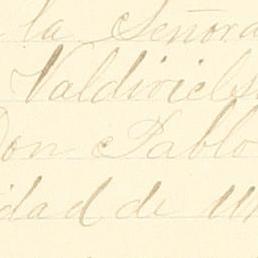 la Señora
Valdiviels
Don Pablo
idad de